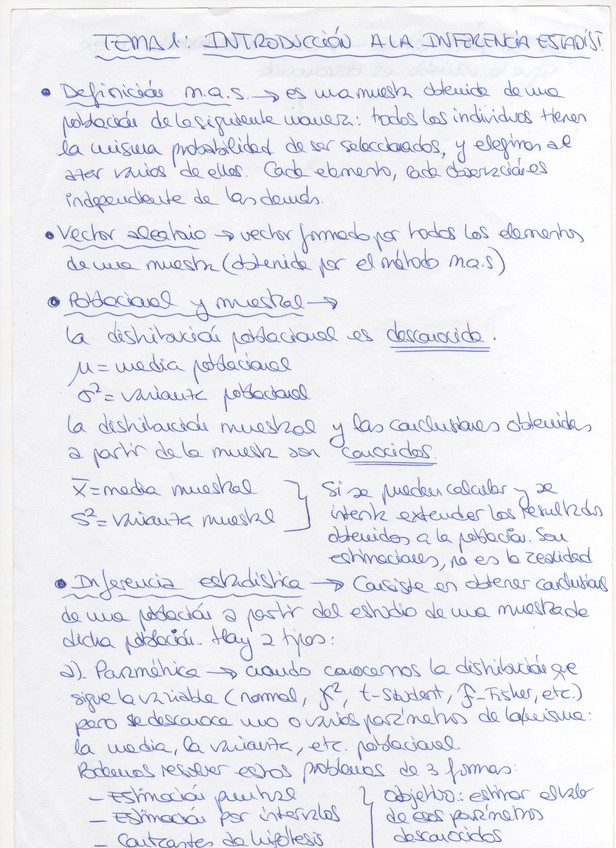 TEMA 1: INTRODUCCIÓN A LA INFERENCIA ESTADÍST
• Definición m.a.s. → es una muestra obtenida de una
población de la siguiente manera: todos los individuos tienen
la misma probabilidad de ser seleccionados, y elegimos al
azar varios de ellos. Cada elemento, cada observación es
independiente de las demás.
• Vector aleatorio → vector formado por todos los elementos
de una muestra (obtenida por el método m.a.s)
• Poblacional y muestral →
la distribución poblacional es desconocida.
μ = media poblacional
σ² = varianza poblacional
la distribución muestral y las conclusiones obtenidas
a partir de la muestra son conocidos.
x̄ = media muestral
s² = varianza muestral
Si se pueden calcular y se
intenta extender los resultados
obtenidos a la población. Son
estimaciones, no es la realidad
• Inferencia estadística → Consiste en obtener conclusiones
de una población a partir del estudio de una muestra de
dicha población. Hay 2 tipos:
a). Paramétrica → cuando conocemos la distribución que
sigue la variable (normal, χ², t-Student, F-Fisher, etc)
pero se desconoce uno o varios parámetros de la misma:
la media, la varianza, etc. poblacional.
Podemos resolver estos problemas de 3 formas:
– Estimación puntual
– Estimación por intervalos
– Contrastes de hipótesis
objetivo: estimar el valor
de esos parámetros
desconocidos